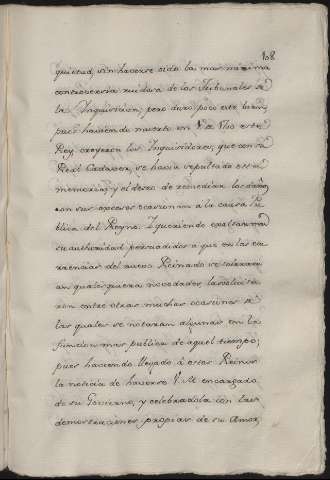 108
quietud, sin haverse oido la mas minima
controversia ruidosa de los Tribunales de
la Inquisicion; pero duro poco este bien
pues haviendo muerto en este
Rey, creyeron los Inquisidores, que con su
Real Cadaver, se havia sepultado su
memoria, y el deseo de remediar los daños,
con sus excesos ocasionan a la causa Pu
blica del Reyno. I queriendo exaltar mas
su authoridad persuadidos a que en las cu
rrencias del nuevo Reinado se tolerara
an quales quiera novedades, las solicita
ron entre otras muchas ocasiones a
las quales se notaran algunas en la
funcion mas publica de aquel tiempo;
pues haviendo llegado á estos Reinos
la noticia de haverse V. M. encargado
de su Govierno, y celebradola con las
demostraciones propias de su Amor,